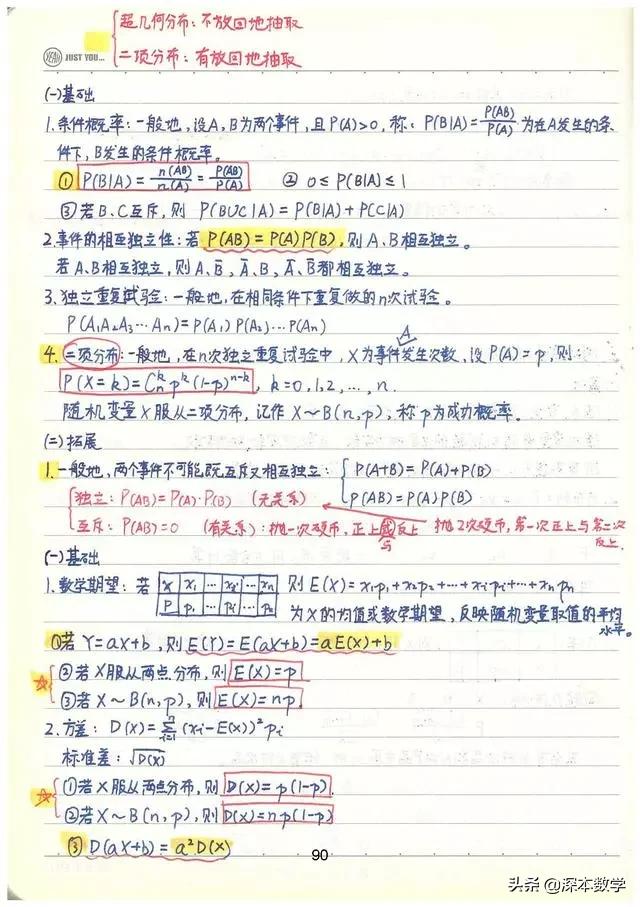 超几何分布：不放回地抽取
YEAH JUST YOU...
二项分布：有放回地抽取
(一)基础
1.条件概率：一般地，设A，B为两个事件，且P(A)>0，称：P(B|A)=P(AB)/P(A) 为在A发生的条
件下，B发生的条件概率。
① P(B|A)=n(AB)/n(A)=P(AB)/P(A) ② 0≤P(B|A)≤1
③若B、C互斥，则 P(B∪C|A)=P(B|A)+P(C|A)
2.事件的相互独立性：若 P(AB)=P(A)P(B)，则A、B相互独立。
若A、B相互独立，则A、B̄，Ā、B，Ā、B̄都相互独立。
3.独立重复试验：一般地，在相同条件下重复做的n次试验。
P(A₁A₂A₃…Aₙ)=P(A₁)P(A₂)…P(Aₙ)
A
4.二项分布：一般地，在n次独立重复试验中，X为事件发生次数，设P(A)=p，则：
P(X=k)=Cₙᵏpᵏ(1-p)ⁿ⁻ᵏ，k=0,1,2,…,n.
随机变量X服从二项分布，记作X~B(n,p)，称p为成功概率。
(二)拓展
1.一般地，两个事件不可能既互斥又相互独立：P(A+B)=P(A)+P(B)
P(AB)=P(A)P(B)
独立：P(AB)=P(A)·P(B) (无关系)
互斥：P(AB)=0 (有关系)：抛一次硬币，正上或反上 抛2次硬币，第一次正上与第二次
与 反上.
(一)基础
1.数学期望：若 X x₁ … xᵢ … xₙ 则E(X)=x₁p₁+x₂p₂+…+xᵢpᵢ+…+xₙpₙ
P p₁ … pᵢ … pₙ 为X的均值或数学期望，反映随机变量取值的平均
水平。
①若Y=aX+b，则E(Y)=E(aX+b)=aE(X)+b
②若X服从两点分布，则E(X)=p
③若X~B(n,p)，则E(X)=np.
2.方差：D(X)=∑ⁿᵢ₌₁(xᵢ-E(X))²pᵢ
标准差：√D(X)
①若X服从两点分布，则D(X)=p(1-p).
②若X~B(n,p)，则D(X)=np(1-p)
③ D(aX+b)=a²D(X)
90
头条 @深本数学